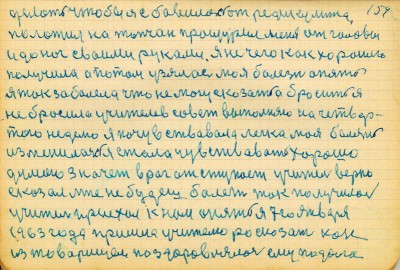 делоть чтобы я сбавилась от редикулита, 157
положил на топчан прощурил меня от головы
и до ног своими руками. Я ничего как хорошего
получила а потом узялась моя балезн опять
я так забалела что не могу сказать а броситься
не бросила учителев совет выполняю на четвер-
того неделю я почувствавала легка моя балезнь
изменилась я стала чувствавать хорошо
думаю значет враг отступает учитель верно
сказал мне не будеш балеть так получилось
учитель приехал к нам опять я 7го января
1963 года пришла учителю росказать как
из товарищем поздоровнялася ему подала